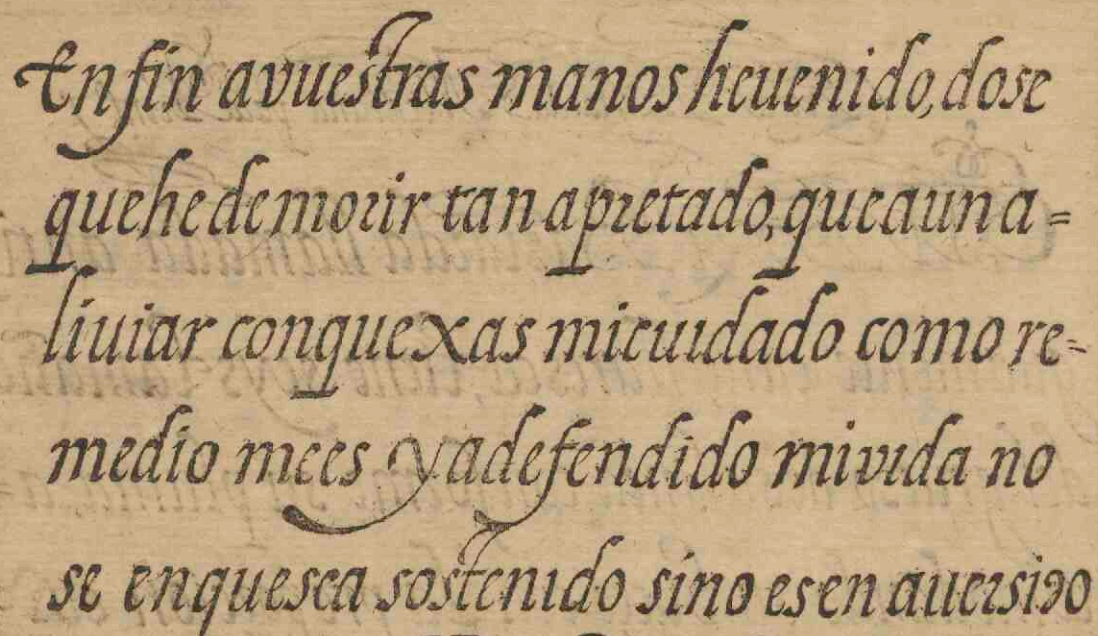 En fin avuestras manos heuenido, dose
quehe demorir tan apretado, que aun a=
liuiar conquexas micuidado como re=
medio mees ya defendido mivida no
se enquesea sostenido sino es en auersido